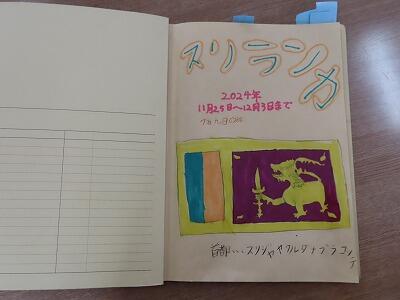 スリランカ
2024年
11月25日〜12月3日まで
首都...スリジャヤワルダナプラコッテ